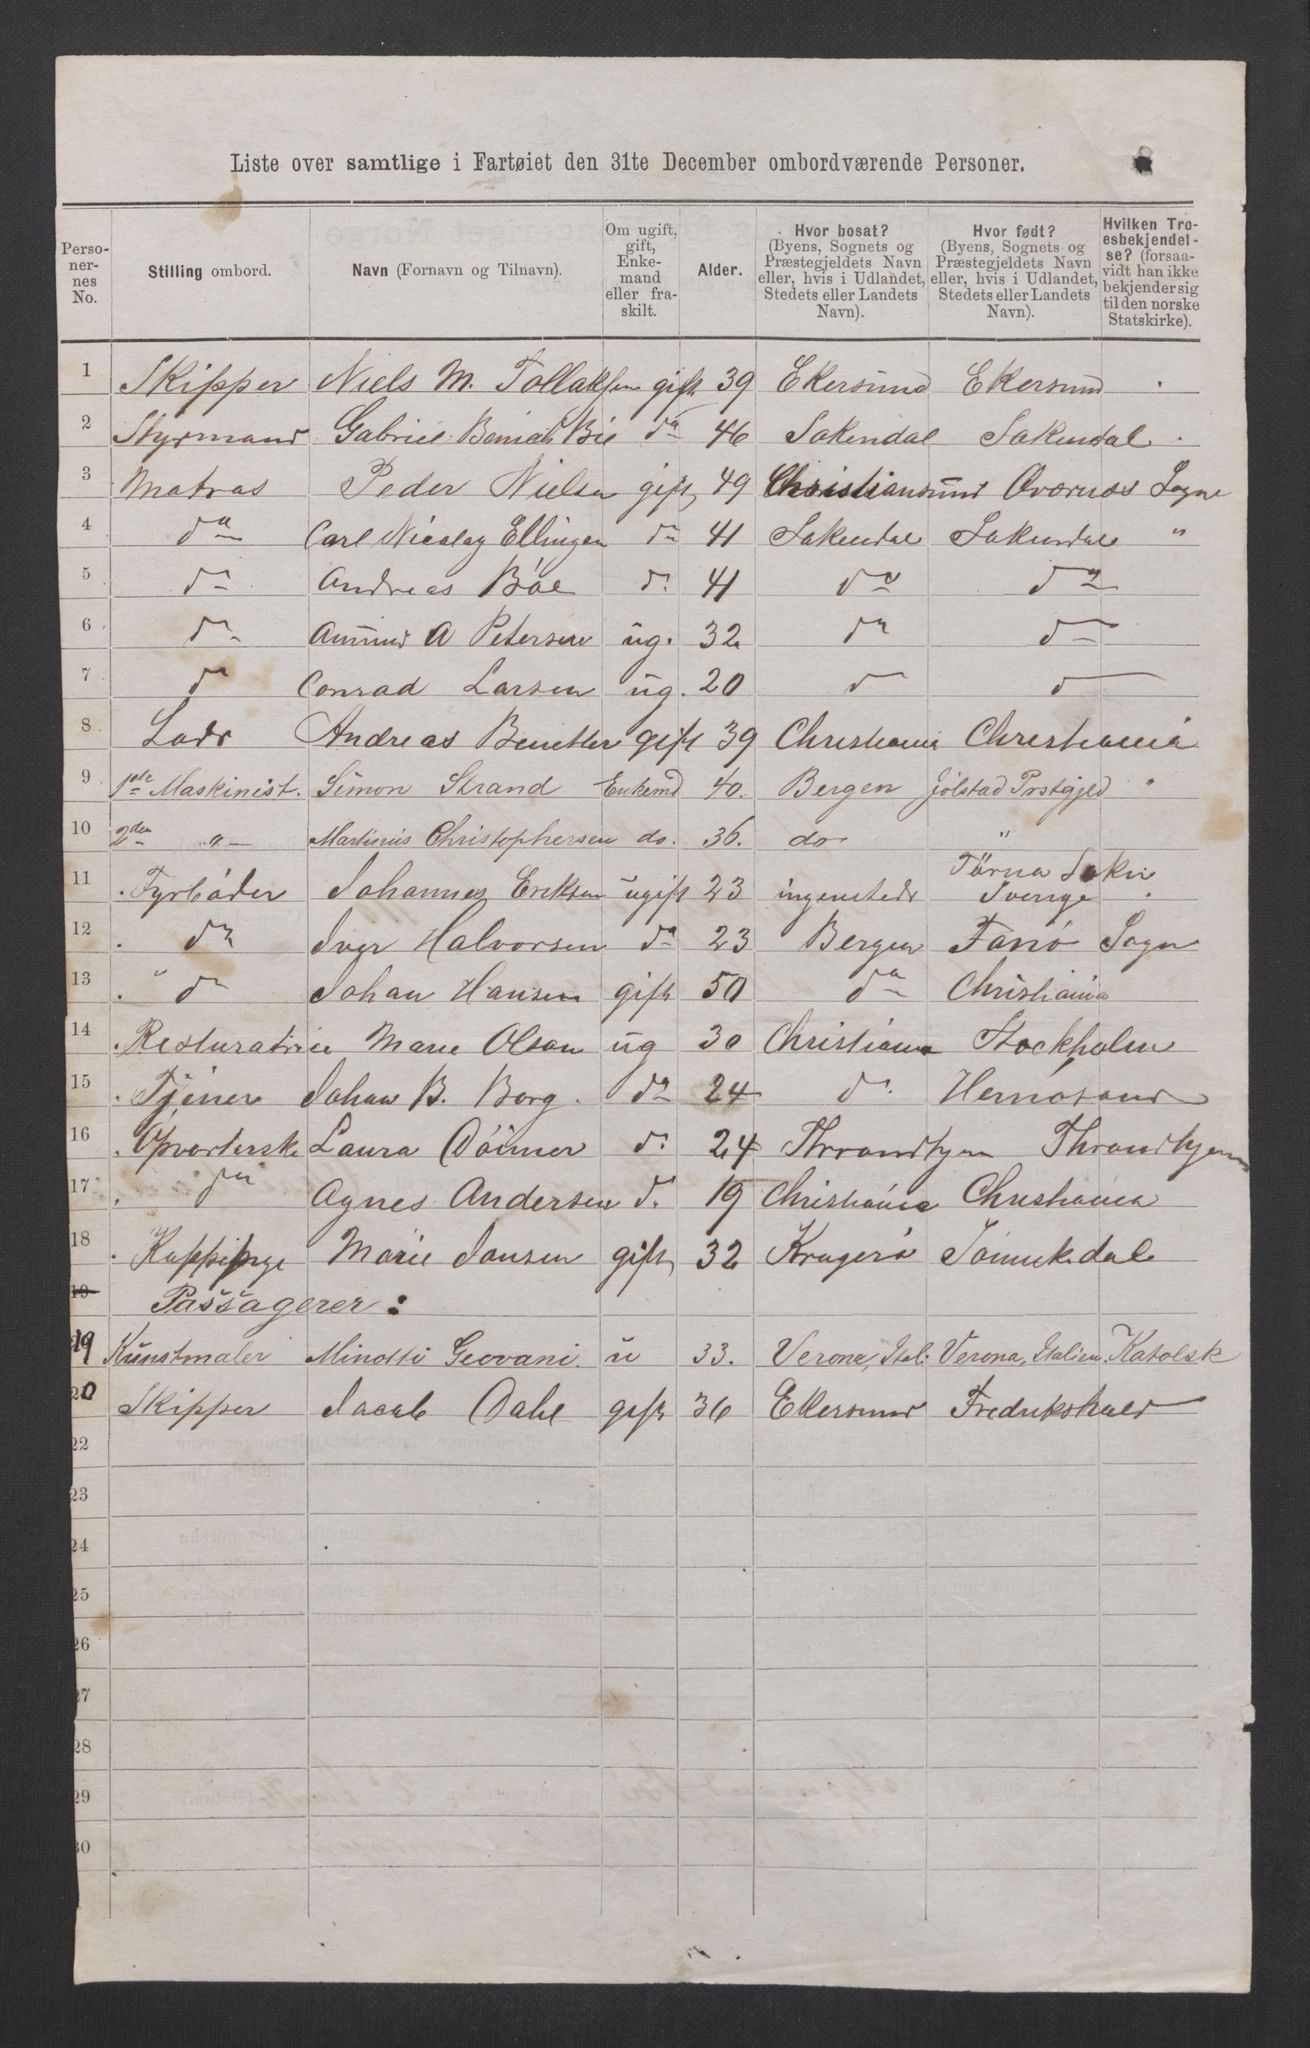 Liste over samtlige i Fartøiet den 31te December ombordværende Personer.
Personernes No. Stilling ombord. Navn (Fornavn og Tilnavn). Om ugift, gift, Enkemand eller fraskilt. Alder. Hvor bosat? (Byens, Sognets og Præstegjeldets Navn eller, hvis i Udlandet, Stedets eller Landets Navn). Hvor født? (Byens, Sognets og Præstegjeldets Navn eller, hvis i Udlandet, Stedets eller Landets Navn). Hvilken Troesbekjendelse? (forsaavidt han ikke bekjender sig til den norske Statskirke).
1 Skipper Niels M. Tollaksen gift 39 Ekersund Ekersund
2 Styrmand Gabriel Bie do 46 Sokendal Sokendal
3 Matros Peder Nielsen gift 49 Christiansund Qværnæs Sogn
4 do Carl Nicolay Ellingsen do 41 Sokendal Sokendal "
5 do Andreas Böe do 41 do do
6 do Amund A Petersen ug. 32 do do
7 do Conrad Larsen ug. 20 do do
8 Lods Andreas Benetter gift 39 Christiania Christiania
9 1ste Maskinist. Simon Strand Enkemd 40. Bergen Jölstad Prstgjeld "
10 2den " Martinus Christophersen do. 36. do "
11 Fyrböder Johannes Eriksen ugift 23 ingensteds Tärna Sokn Sverige
12 do Iver Halvorsen do 23 Bergen Fanö Sogn
13 do Johan Hansen gift 50 do Christiania
14 Resturatrice Marie Olsen ug 30 Christiania Stockholm
15 Tjener Johan B. Borg. do 24 do Hernösand
16 Opvarterske Laura Döimer do 24 Throndhjem Throndhjem
17 do Agnes Andersen do 19 Christiania Christiania
18 Kappipige Marie Jansen gift 32 Kragerö
19 Passagerer:
19 Kunstmaler Minotti Geovani. u 33. Verona, Ital. Verona, Italien. Katolsk
20 Skipper Jacob Dahl gift 36 Ekersund Fredrikshald
22
23
24
25
26
27
28
29
30